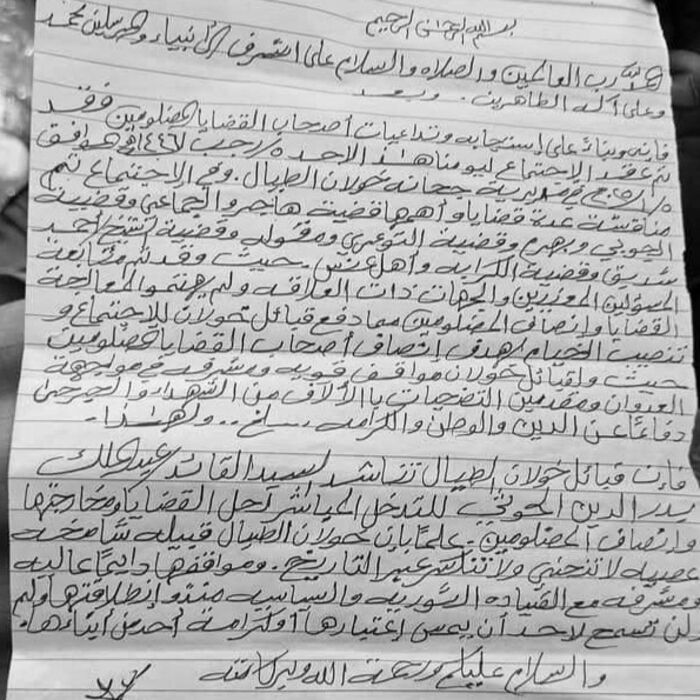 بسم الله الرحمن الرحيم
الحمد لله رب العالمين والصلاه والسلام على اشرف الأنبياء والمرسلين محمد
وعلى آله الطاهرين.. وبعد
فإنه وبناءً على إستجابه وتداعيات أصحاب القضايا المضلومين فقد
تم عقد الإجتماع ليومنا هذا الاحد ٥/رجب/١٤٤٦هـ الموافق
٢٠٢٥/١/٥م في مديرية جحانه خولان الطيال. وفي الإجتماع تم
مناقشة عدة قضايا وأهمها قضية هاجر والجماعي وقضية
الجوبي وبهرم وقضية التوعري ومقوله وقضية الشيخ أحمد
شديق وقضية الكرايه وأهل عنتش. حيث وقد تم متابعة
المسؤلين المعنيين والجهات ذات العلاقه ولم يهتموا لمعالجة
القضايا وإنصاف المضلومين مما دفع قبائل خولان للإجتماع و
تنصيب الخيام لهدف إنصاف أصحاب القضايا المضلومين
حيث ولقبائل خولان مواقف قويه ومشرفه في مواجهة
العدوان ومقدمين التضحيات بالألاف من الشهداء والجرحى
دفاعاً عن الدين والوطن والكرامه ..ولهذا..
فإن قبائل خولان الطيال تناشد السيد القائد عبدالملك
بدر الدين الحوثي للتدخل المباشر لحل القضايا ومخارجتها
وإنصاف المضلومين. علماً بإن خولان الطيال قبيله شامخه
عصيه لا تنحني ولا تنكسر عبر التاريخ. ومواقفها دايماً عاليه
ومشرفه مع القياده الثوريه والسياسيه منذو إنطلاقتها ولم
لن تسمح لاحد أن يمس إعتبارها أو كرامة أحد من أبنائها.
والسلام عليكم ورحمة الله وبركاته